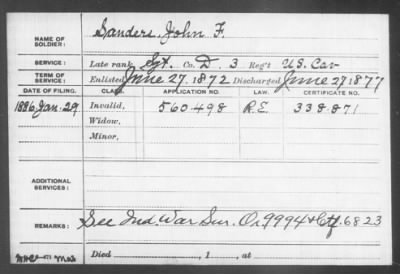 NAME OF SOLDIER: Sanders, John F.
SERVICE: Late rank, Sgt. Co. D. 3 Reg't U.S. Cav
TERM OF SERVICE: Enlisted June 27. 1872 Discharged June 27 1877
DATE OF FILING. CLASS. APPLICATION NO. LAW. CERTIFICATE NO.
1886, Jan. 29 Invalid, 560.498 R.E. 338.871
Widow,
Minor,
ADDITIONAL SERVICES:
REMARKS: See Ind. War Sur. O. 9994 & Ctf. 6823
Died , 1 , at